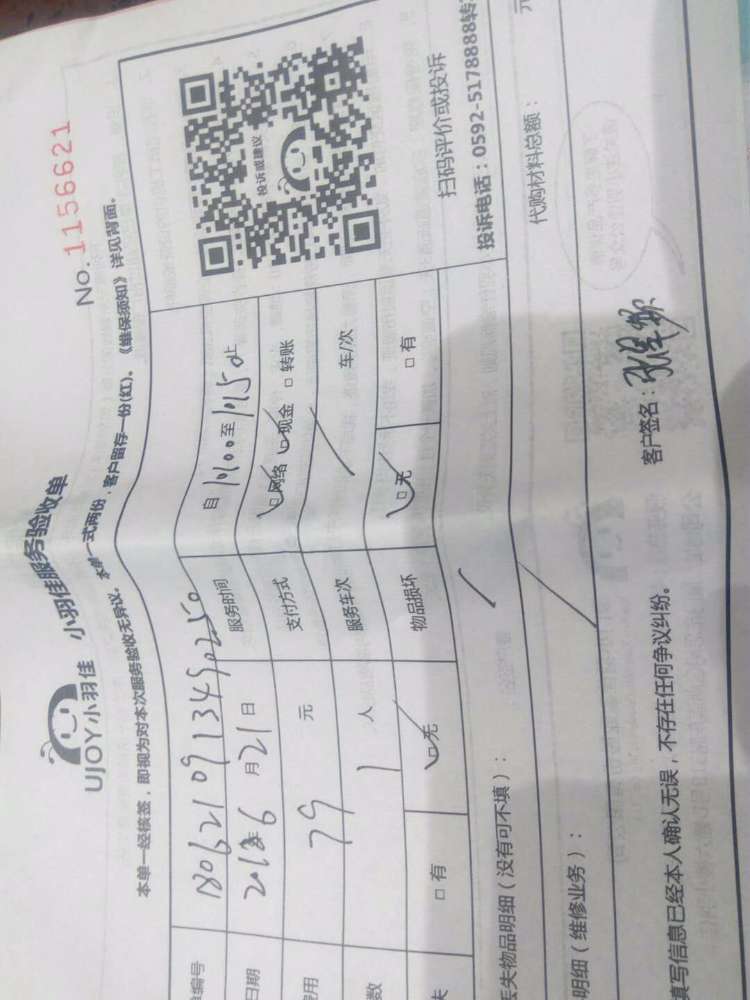 No. 1156621
UJOY小羽佳 小羽佳服务验收单
本单一经核签，即视为对本次服务验收无异议。本单一式两份，客户留存一份(红)。《维保须知》详见背面。
编号 1806210913450250 服务时间 自 至 止
日期 2018年6月21日 支付方式 网络 现金 转账
费用 79 元 服务车次 车/次
数 1 人 物品损坏 无 有
失 有 无
投诉或建议
扫码评价或投诉
投诉电话：0592-5178888转
丢失物品明细（没有可不填）：
明细（维修业务）：
代购材料总额： 元
填写信息已经本人确认无误，不存在任何争议纠纷。 客户签名：